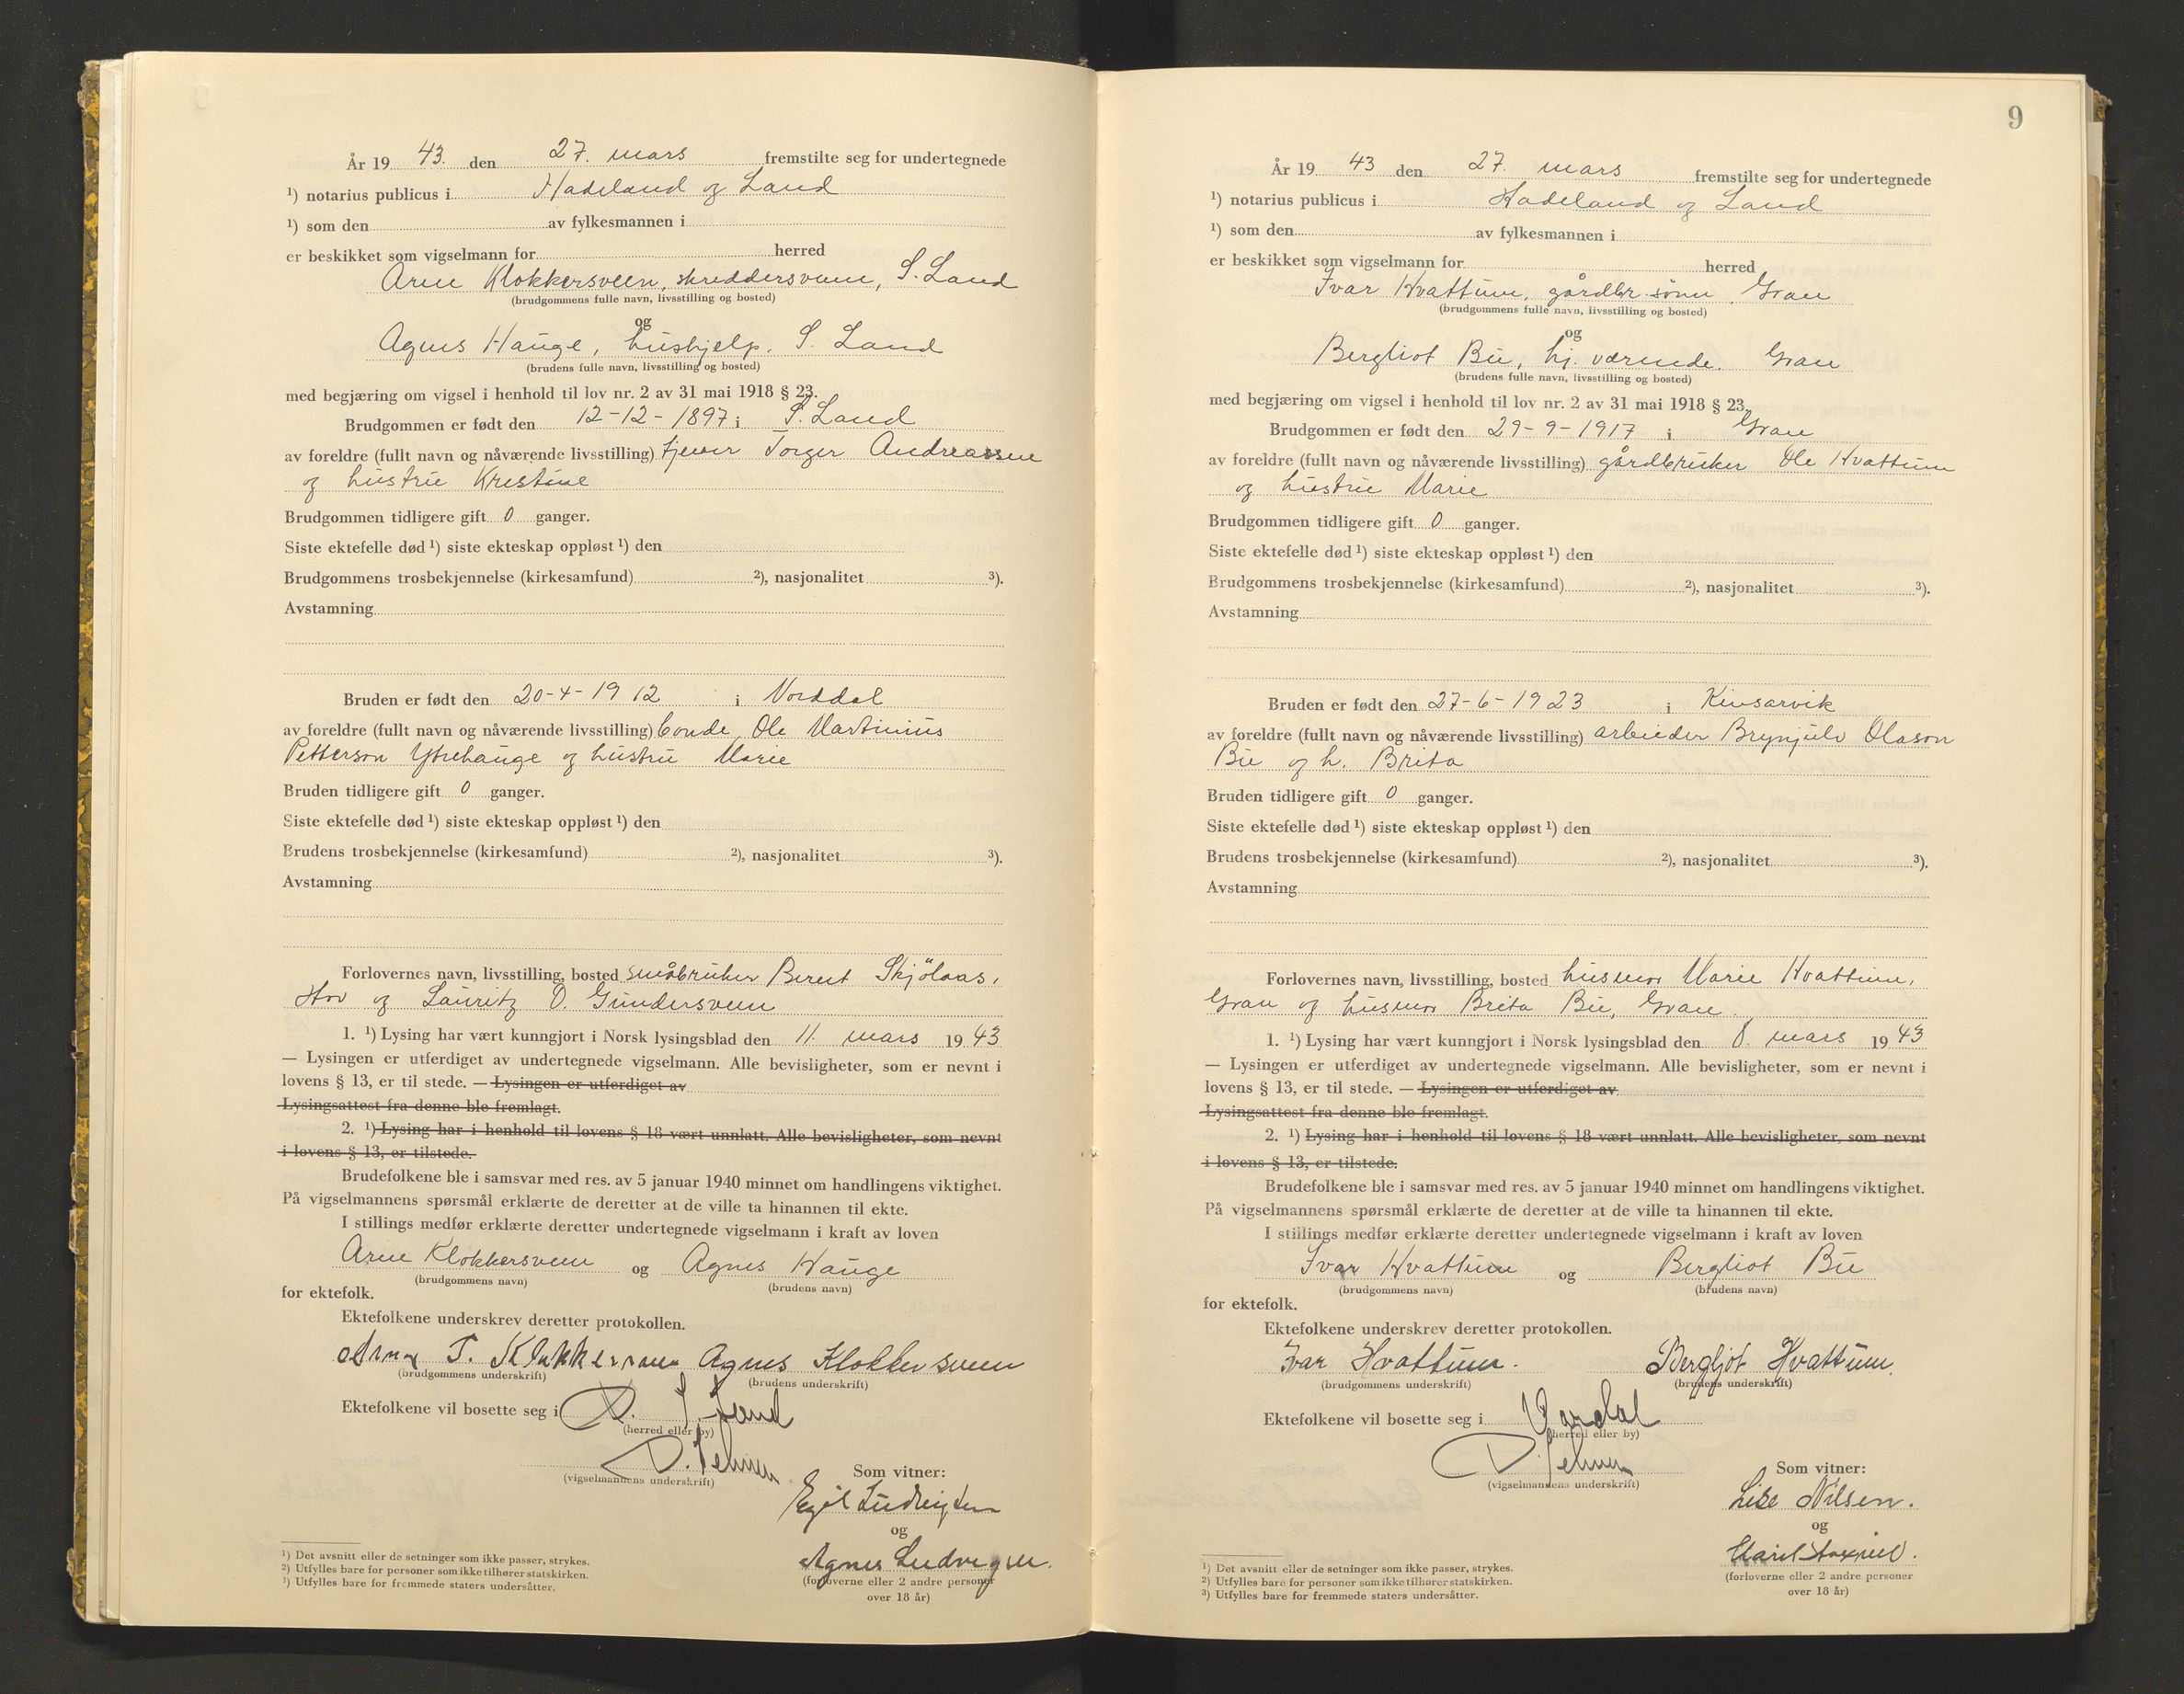 År 19 43. den 27. mars fremstilte seg for undertegnede
¹) notarius publicus i Hadeland og Land
¹) som den av fylkesmannen i
er beskikket som vigselmann for herred
Arne Klokkersveen, skreddersvenn, S. Land
(brudgommens fulle navn, livsstilling og bosted)
og
Agnes Hauge, hushjelp, S. Land
(brudens fulle navn, livsstilling og bosted)
med begjæring om vigsel i henhold til lov nr. 2 av 31 mai 1918 § 23.
Brudgommen er født den 12-12-1897 i S. Land
av foreldre (fullt navn og nåværende livsstilling) tjener Torger Andreassen
og hustru Kristine
Brudgommen tidligere gift 0 ganger.
Siste ektefelle død ¹) siste ekteskap oppløst ¹) den
Brudgommens trosbekjennelse (kirkesamfund) ²), nasjonalitet ³).
Avstamning
Bruden er født den 20-4-1912 i Norddal
av foreldre (fullt navn og nåværende livsstilling) bonde Ole Martinius
Petterson Ytrehauge og hustru Marie
Bruden tidligere gift 0 ganger.
Siste ektefelle død ¹) siste ekteskap oppløst ¹) den
Brudens trosbekjennelse (kirkesamfund) ²), nasjonalitet ³).
Avstamning
Forlovernes navn, livsstilling, bosted småbruker Bernt Skjölaas,
Hov og Lauritz O. Gundersveen
1. ¹) Lysing har vært kunngjort i Norsk lysingsblad den 11. mars 19 43
— Lysingen er utferdiget av undertegnede vigselmann. Alle bevisligheter, som er nevnt i
lovens § 13, er til stede. — Lysingen er utferdiget av
Lysingsattest fra denne ble fremlagt.
2. ¹) Lysing har i henhold til lovens § 18 vært unnlatt. Alle bevisligheter, som nevnt
i lovens § 13, er tilstede.
Brudefolkene ble i samsvar med res. av 5 januar 1940 minnet om handlingens viktighet.
På vigselmannens spørsmål erklærte de deretter at de ville ta hinannen til ekte.
I stillings medfør erklærte deretter undertegnede vigselmann i kraft av loven
Arne Klokkersveen og Agnes Hauge
(brudgommens navn) (brudens navn)
for ektefolk.
Ektefolkene underskrev deretter protokollen.
Arne T. Klokkersveen Agnes Klokkersveen
(brudgommens underskrift) (brudens underskrift)
Ektefolkene vil bosette seg i S. Land
(herred eller by)
(vigselmannens underskrift)
Som vitner:
Egil Ludvigsen
og
Agnes Ludvigsen.
(forloverne eller 2 andre personer
over 18 år)
¹) Det avsnitt eller de setninger som ikke passer, strykes.
²) Utfylles bare for personer som ikke tilhører statskirken.
³) Utfylles bare for fremmede staters undersåtter.
9
År 19 43 den 27. mars fremstilte seg for undertegnede
¹) notarius publicus i Hadeland og Land
¹) som den av fylkesmannen i
er beskikket som vigselmann for herred
Ivar Hvattum, gårdbr. sønn, Gran
(brudgommens fulle navn, livsstilling og bosted)
og
Bergliot Bu, hj. værende, Gran
(brudens fulle navn, livsstilling og bosted)
med begjæring om vigsel i henhold til lov nr. 2 av 31 mai 1918 § 23.
Brudgommen er født den 29-9-1917 i Gran
av foreldre (fullt navn og nåværende livsstilling) gårdbruker Ole Hvattum
og hustru Marie
Brudgommen tidligere gift 0 ganger.
Siste ektefelle død ¹) siste ekteskap oppløst ¹) den
Brudgommens trosbekjennelse (kirkesamfund) ²), nasjonalitet ³).
Avstamning
Bruden er født den 27-6-1923 i Kinsarvik
av foreldre (fullt navn og nåværende livsstilling) arbeider Brynjulv Olason
Bu og h. Brita
Bruden tidligere gift 0 ganger.
Siste ektefelle død ¹) siste ekteskap oppløst ¹) den
Brudens trosbekjennelse (kirkesamfund) ²), nasjonalitet ³).
Avstamning
Forlovernes navn, livsstilling, bosted husmor Marie Hvattum,
Gran og husmor Brita Bu, Gran.
1. ¹) Lysing har vært kunngjort i Norsk lysingsblad den 8. mars 19 43
— Lysingen er utferdiget av undertegnede vigselmann. Alle bevisligheter, som er nevnt i
lovens § 13, er til stede. — Lysingen er utferdiget av
Lysingsattest fra denne ble fremlagt.
2. ¹) Lysing har i henhold til lovens § 18 vært unnlatt. Alle bevisligheter, som nevnt
i lovens § 13, er tilstede.
Brudefolkene ble i samsvar med res. av 5 januar 1940 minnet om handlingens viktighet.
På vigselmannens spørsmål erklærte de deretter at de ville ta hinannen til ekte.
I stillings medfør erklærte deretter undertegnede vigselmann i kraft av loven
Ivar Hvattum og Bergliot Bu
(brudgommens navn) (brudens navn)
for ektefolk.
Ektefolkene underskrev deretter protokollen.
Ivar Hvattum. Bergljot Hvattum.
(brudgommens underskrift) (brudens underskrift)
Ektefolkene vil bosette seg i Vardal
(herred eller by)
(vigselmannens underskrift)
Som vitner:
Lise Nilsen.
og
(forloverne eller 2 andre personer
over 18 år)
¹) Det avsnitt eller de setninger som ikke passer, strykes.
²) Utfylles bare for personer som ikke tilhører statskirken.
³) Utfylles bare for fremmede staters undersåtter.